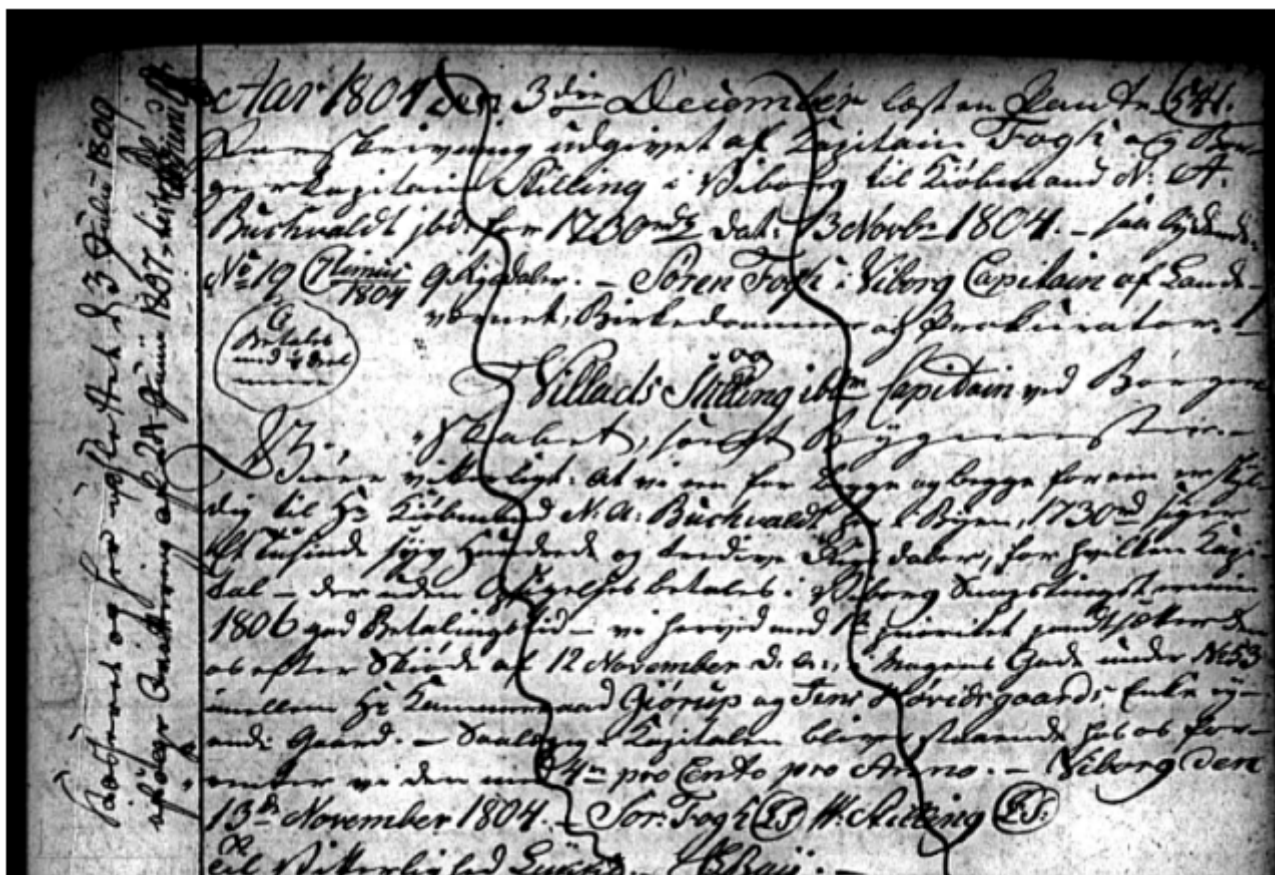 Aar 1804 den 3die December læst en Pante 541.
Forskrivning udgivet af Kapitain Fogh og Bor-
gerkapitain Stilling i Viborg til Kiøbmand N: A:
Buchvaldt for 1730 rd dat: 13 Novbr 1804. – saa lydende:
No 19 1804 9 Rigsdaler. – Sören Fogh i Viborg Capitain af Lande-
værnet, Birkedommer og Prokurator.
og
Betales med
Villads Stilling ibm Capitain ved Borger
skabet, samt Bygmester. –
vitterligt: At vi een for begge og begge for een er skyl-
dig til Hr Kiøbmand N. A: Buchvaldt her i Byen, 1730 rd siger
Et Tusinde syv Hundrede og tredive Rigsdaler, for hvilken Kapi-
tal – der uden Opsigelse betales i Viborg Snapstings termin
1806 ved Betalingstid – vi herved med prioritet pantsætter den
os efter Skiøde af 12 November d. a: i Magens Gade under No 53
imellem Hr Kammerraad Giørup og Jens Høvidsgaards Enke
Gaard. – Saalænge Kapitalen bliver staaende hos os for-
renter vi den med 4 pro Cento pro Anno. – Viborg den
13de November 1804. – Sör: Fogh (LS) W. Stilling (LS)
til Vitterlighed
3 Julii 1809
Junii 1807